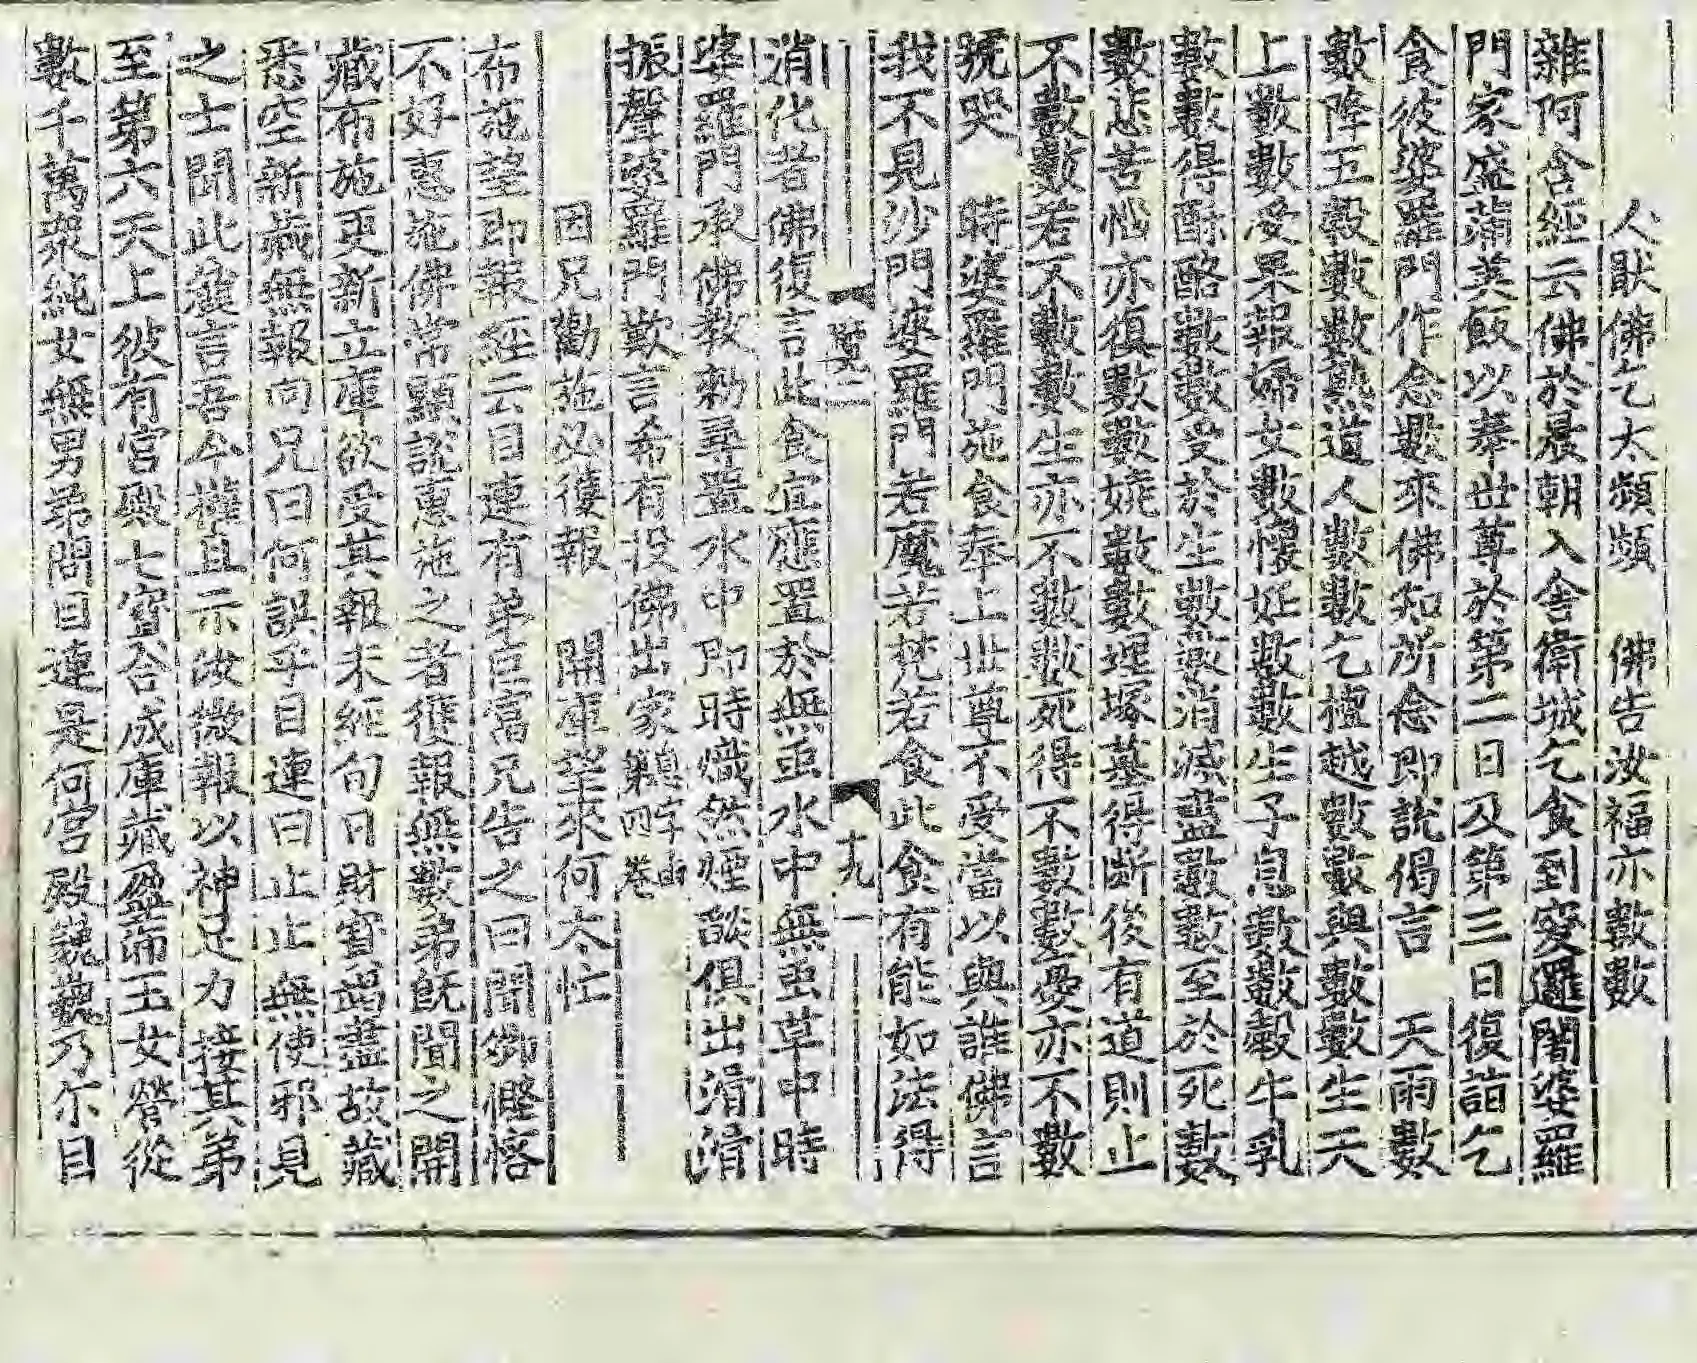 人猒佛乞太頻頻　佛告汝福亦數數
雜阿含經云佛於晨朝入舍衛城乞食到窔邏闍婆羅
門家盛滿美飯以奉世尊於第二日及第三日復詣乞
食彼婆羅門作念數來佛知所念即說偈言　天雨數
數降五穀數數熟道人數數乞檀越數數與數數生天
上數數受果報婦女數懷妊數數生子息數數𣫭牛乳
數數得酥酪數數受於生數數消滅盡數數至於死數
數悲苦惱亦復數數燒數數埋塚墓得斷後有道則止
不數數若不數數生亦不數數死得不數數憂亦不數
號哭　時婆羅門施食奉上世尊不受當以與誰佛言
我不見沙門婆羅門若魔若梵若食此食有能如法得
雙二　十九
消化者佛復言此食宜應置於無虫水中無虫草中時
婆羅門承佛教勑尋置水中即時熾然煙𦦨俱出滑滑
振聲婆羅門歎言希有投佛出家 字函四卷
因兄勸施必獲報　開庫望來何太忙
布施望即報經云目連有弟巨富兄告之曰聞卿慳悋
不好惠施佛常顯說惠施之者獲報無數弟既聞之開
藏布施更新立庫欲受其報未經旬日財寶竭盡故藏
悉空新藏無報向兄曰何誤乎目連曰止止無使邪見
之士聞此麤言吾今權且示汝微報以神足力接其弟
至第六天上彼有宮殿七寶合成庫藏盈滿玉女營從
數千萬眾純女無男弟問目連是何宮殿巍巍乃尒目